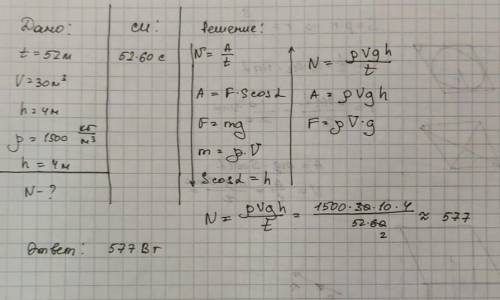 Дано:
t = 52 м
V = 30 м³
h = 4 м
ρ = 1500 кг/м³
h = 4 м
N - ?
си:
52·60 с
Решение:
N = A/t
A = F·S cosα
F = mg
m = ρ·V
S cosα = h
N = ρVgh/t
A = ρVgh
F = ρV·g
N = ρVgh/t = 1500·30·10·4/52·60 ≈ 577
2
Ответ: 577 Вт